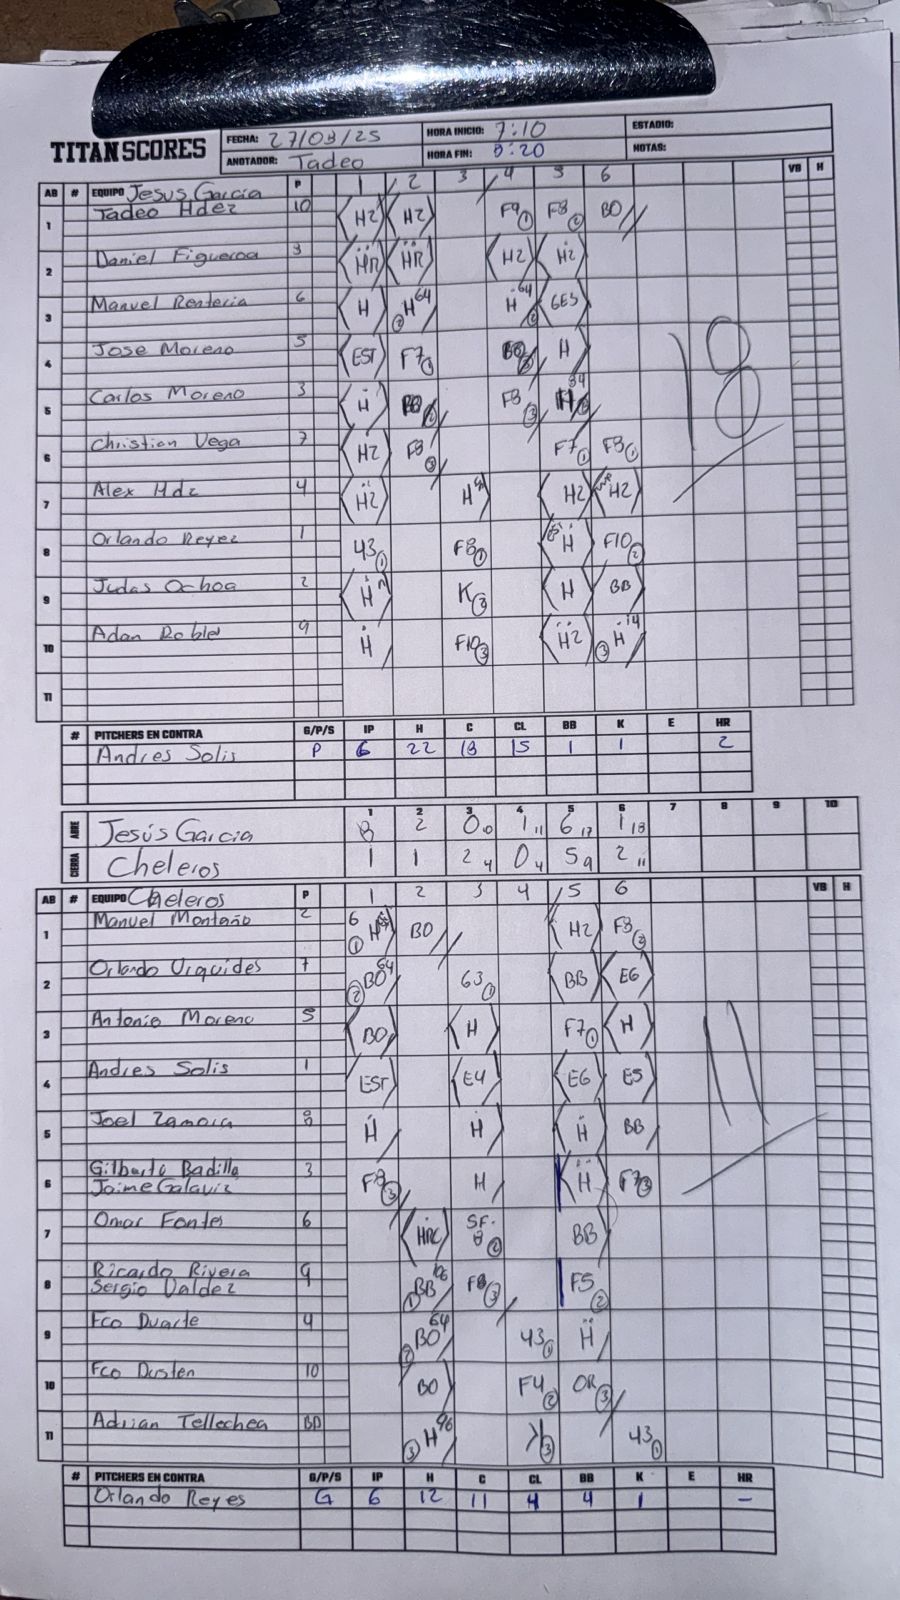 TITAN SCORES
FECHA: 27/03/25 HORA INICIO: 7:10 ESTADIO:
ANOTADOR: Tadeo HORA FIN: 8:20 NOTAS:
AB # EQUIPO Jesus Garcia P 1 2 3 4 5 6 VB H
1 Tadeo Hdez 10 H2 H2 F9 1 F8 2 BO
2 Daniel Figueroa 3 HR HR H2 H2
3 Manuel Renteria 6 H H 64 2 H 64 2 6E3
4 Jose Moreno 5 EST F7 1 H
5 Carlos Moreno 3 H F8 3 H 34
6 Christian Vega 7 H2 F8 3 F7 1 F8 1
7 Alex Hdz 4 H2 H H2 H2
8 Orlando Reyez 1 43 1 F8 1 H F10 2
9 Judas Ochoa 2 H K 2 H BB
10 Adan Robles 9 H F10 3 H2 H 14 3
11
18
# PITCHERS EN CONTRA G/P/S IP H C CL BB K E HR
Andres Solis P 6 22 18 15 1 1 2
1 2 3 4 5 6 7 8 9 10
ABRE Jesús Garcia 8 2 0 10 1 11 6 17 1 18
CIERRA Cheleros 1 1 2 4 0 4 5 9 2 11
AB # EQUIPO Cheleros P 1 2 3 4 5 6 VB H
1 Manuel Montaño 2 6 1 H BO H2 F8 2
2 Orlando Urquides 7 BO 64 2 63 1 BB E6
3 Antonio Moreno 5 BO H F7 1 H
4 Andres Solis 1 EST E4 E6 E5
5 Joel Zamora 8 H H H BB
6 Gilberto Badilla 3 F8 3 H H F7 3
Jaime Galaviz
7 Omar Fontes 6 HRC SF. 8 2 BB
8 Ricardo Rivera 9 BB 106 1 F8 3 F5 2
Sergio Valdez
9 Fco Duarte 4 BO 64 2 43 1 H
10 Fco Dusten 10 BO F4 2 OR 3
11 Adrian Tellechea BD H 96 3 3 43 1
11
# PITCHERS EN CONTRA G/P/S IP H C CL BB K E HR
Orlando Reyes G 6 12 11 4 4 1 -